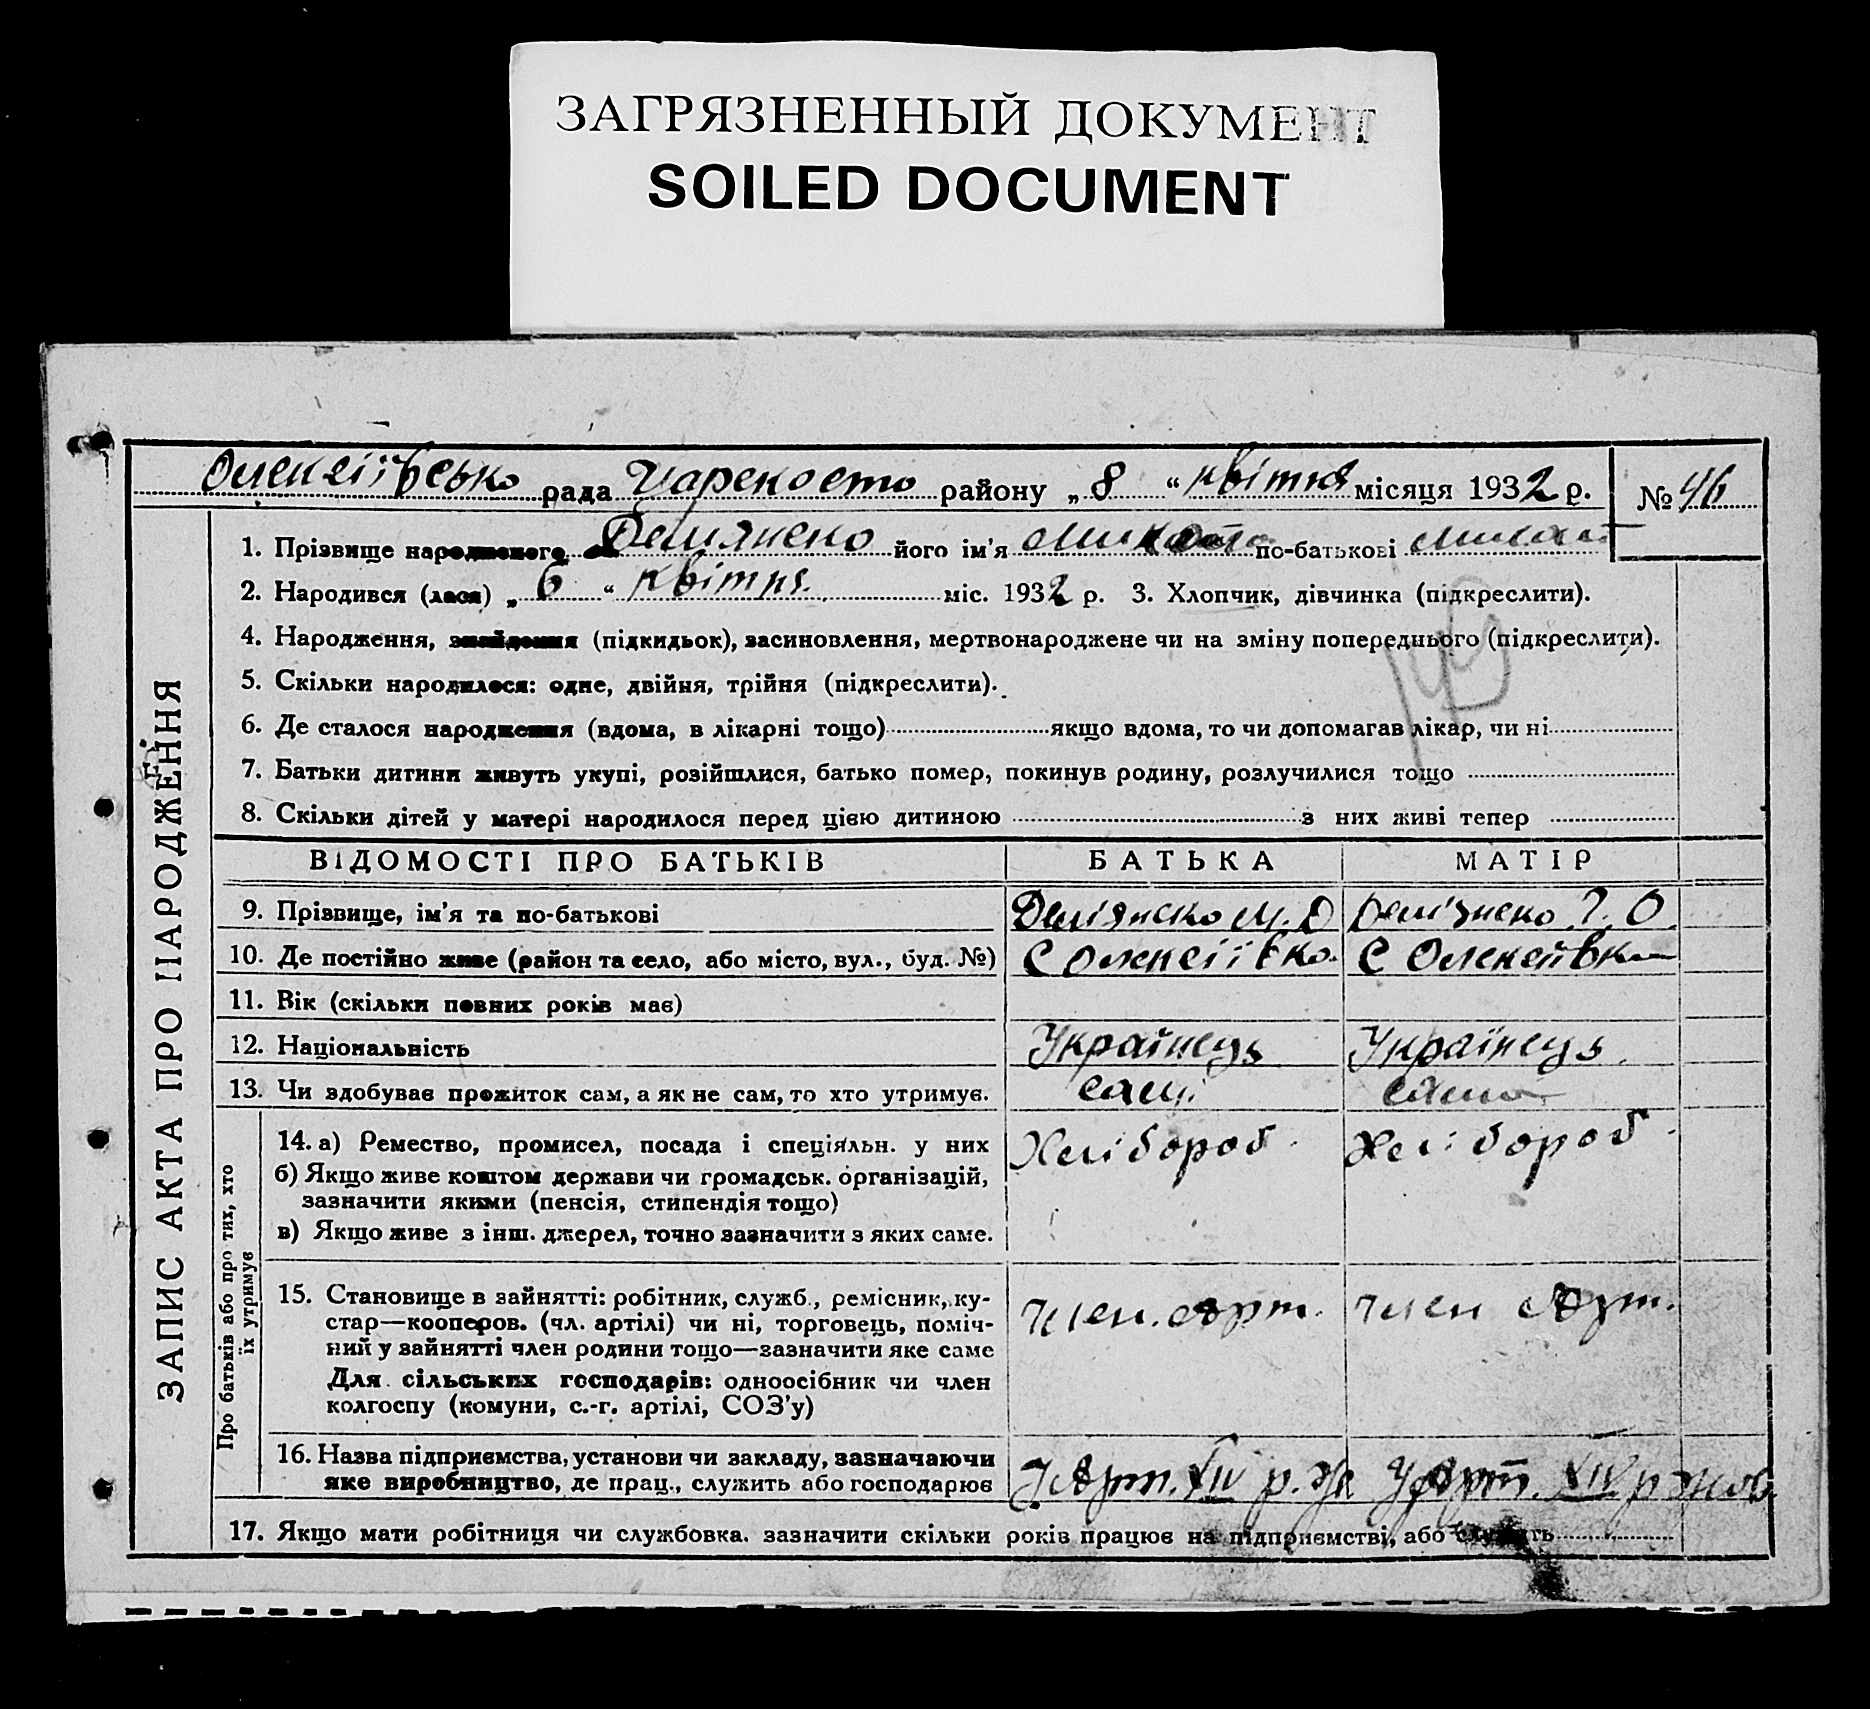 ЗАГРЯЗНЕННЫЙ ДОКУМЕНТ
SOILED DOCUMENT
Олексіївсько рада району „ 8 “ квітня місяця 1932 р. № 46
ЗАПИС АКТА ПРО НАРОДЖЕННЯ
1. Прізвище народженого його ім'я по-батькові
2. Народився (лася) „ 6 “ квітня. міс. 1932 р. 3. Хлопчик, дівчинка (підкреслити).
4. Народження, знайдення (підкидьок), засиновлення, мертвонароджене чи на зміну попереднього (підкреслити).
5. Скільки народилося: одне, двійня, трійня (підкреслити).
6. Де сталося народження (вдома, в лікарні тощо) якщо вдома, то чи допомагав лікар, чи ні
7. Батьки дитини живуть укупі, розійшлися, батько помер, покинув родину, розлучилися тощо
8. Скільки дітей у матері народилося перед цією дитиною з них живі тепер
ВІДОМОСТІ ПРО БАТЬКІВ БАТЬКА МАТІР
9. Прізвище, ім'я та по-батькові
10. Де постійно живе (район та село, або місто, вул., буд. №) С Олексіївка. С Олексіївка
11. Вік (скільки повних років має)
12. Національність Українець Українець.
13. Чи здобуває прожиток сам, а як не сам, то хто утримує. сам сама
Про батьків або про тих, хто
їх утримує
14. а) Ремество, промисел, посада і спеціяльн. у них Хлібороб. Хлібороб.
б) Якщо живе коштом держави чи громадськ. організацій,
зазначити якими (пенсія, стипендія тощо)
в) Якщо живе з інш. джерел, точно зазначити з яких саме.
15. Становище в зайнятті: робітник, служб., ремісник, ку-
стар—кооперов. (чл. артілі) чи ні, торговець, поміч-
ний у зайнятті член родини тощо—зазначити яке саме
Член. Арт. Член Арт.
Для сільських господарів: одноосібник чи член
колгоспу (комуни, с.-г. артілі, СОЗ'у)
16. Назва підприємства, установи чи закладу, зазначаючи
яке виробництво, де прац., служить або господарює
У Арт. XIV р. У Арт. XIV р
17. Якщо мати робітниця чи службовка. зазначити скільки років працює на підприємстві, або служить